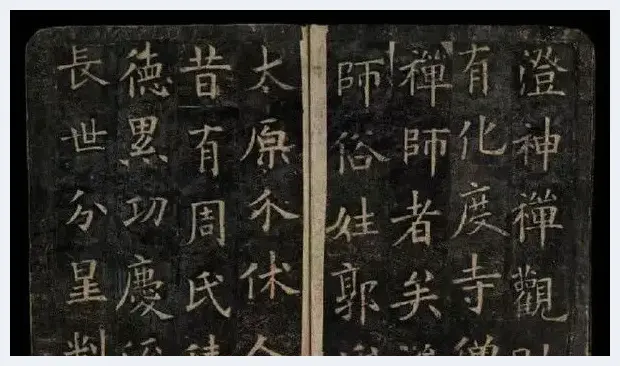 澄神禪觀
有化度寺僧
禪師者矣
師俗姓郭
太原介休人
昔有周氏
德累功慶
長世分星判